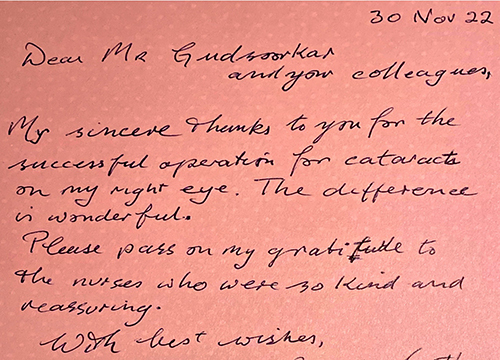 30 Nov 22
Dear Mr Gudsoorkar
and your colleagues,
My sincere thanks to you for the
successful operation for cataracts
on my right eye. The difference
is wonderful.
Please pass on my gratitude to
the nurses who were so kind and
reassuring.
With best wishes,